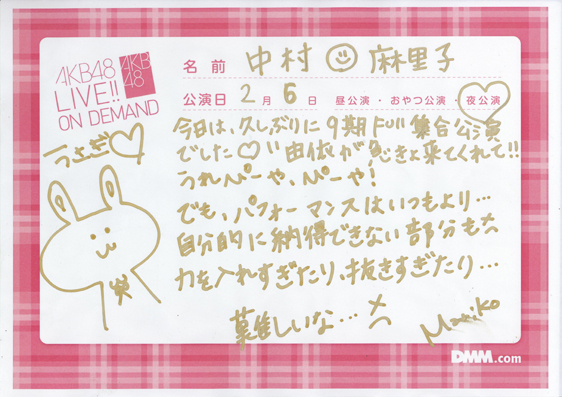 AKB48
LIVE!!
ON DEMAND
AKB
48
名前 中村 麻里子
公演日 2月6日 昼公演・おやつ公演・夜公演
うさぎ♡
今日は、久しぶりに9期Full集合公演
でした♡!! 由依が急きょ来てくれて!!
うれぴーや、ぴーや!
でも、パフォーマンスはいつもより…
自分的に納得できない部分も
力を入れすぎたり、抜きすぎたり…
難しいな…
Mariko
笑
DMM.com